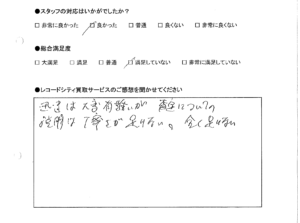 ●スタッフの対応はいかがでしたか?
□ 非常に良かった □ 良かった □ 普通 □ 良くない □ 非常に良くない
●総合満足度
□ 大満足 □ 満足 □ 普通 □ 満足していない □ 非常に満足していない
●レコードシティ買取サービスのご感想を聞かせてください
迅速は大変有難いが 査定についての
説明は丁寧さが足りない。全く足りない